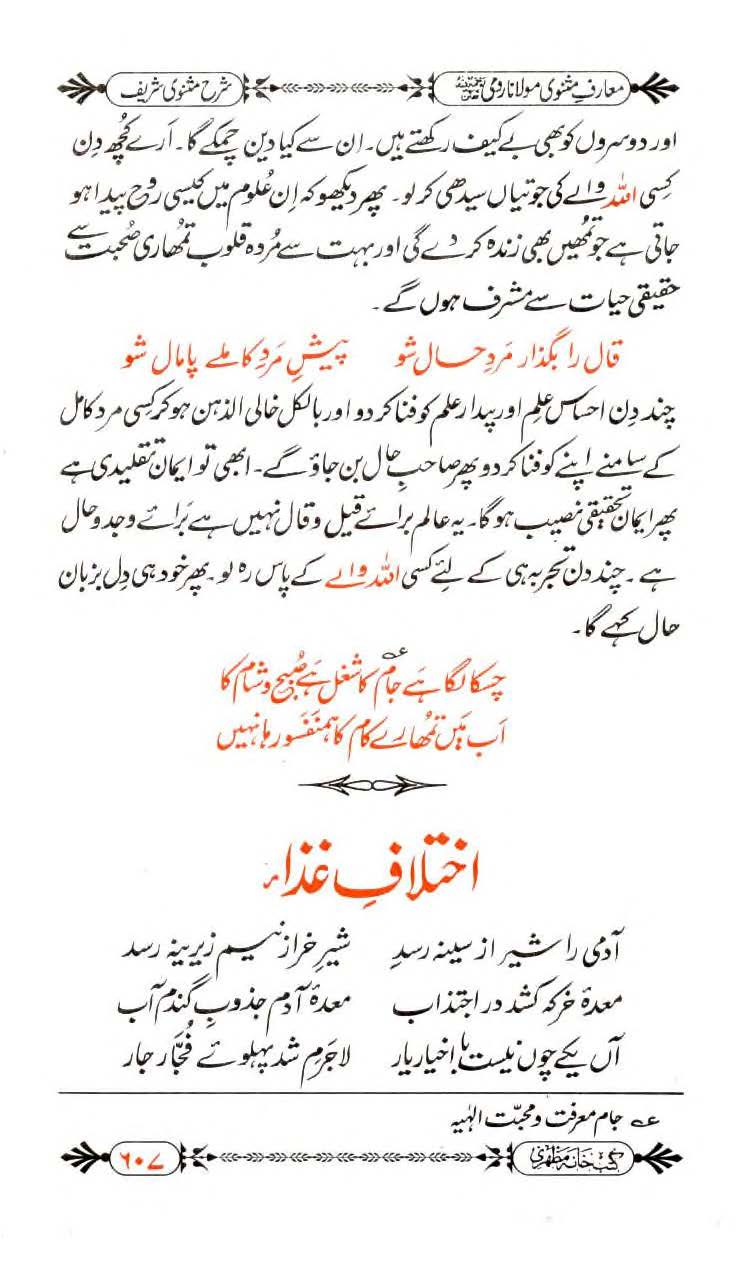 معارفِ مثنوی مولانا رومی رحمۃ اللہ علیہ شرح مثنوی شریف
اور دوسروں کو بھی بے کیف رکھتے ہیں۔ ان سے کیا دین چمکے گا۔ اَرے کُچھ دِن
کِسی اللہ والے کی جوتیاں سیدھی کر لو۔ پھر دیکھو کہ اِن عُلوم میں کیسی روح پیدا ہو
جاتی ہے جو تمُھیں بھی زندہ کر دے گی اور بہت سے مُردہ قلوب تمُھاری صُحبت سے
حقیقی حیات سے مشرف ہوں گے۔
قال را بگذار مَردِ حال شو پیشِ مَردِ کاملے پامال شو
چند دِن احساسِ علم اور پندارِ علم کو فنا کر دو اور بالکل خالی الذہن ہو کر کِسی مرد کامل
کے سامنے اپنے کو فنا کر دو پھر صاحبِ حال بن جاؤ گے۔ ابھی تو ایمان تقلیدی ہے
پھر ایمان تحقیقی نصیب ہو گا۔ یہ عالم برائے قیل و قال نہیں ہے بَرائے وجد و حال
ہے۔ چند دن تجربہ ہی کے لئے کسی اللہ والے کے پاس رہ لو۔ پھر خود ہی دِل بزبان
حال کہے گا۔
چسکا لگا ہَے جام؏ کا شغل ہَے صُبح و شام کا
اَب مَیں تمُھارے کام کا ہمنَفَسو رہا نہیں
اختلافِ غذاء
آدمی را شیر از سینہ رسد شیرِ خر از نیم زیرینہ رسد
معدۂ خر کہ کشد در اجتذاب معدۂ آدم جذوبِ گندم آب
آں یکے چوں نیست با اخیار یار لاجَرم شد پہلوئے فُجّار جار
؏ جام معرفت و محبّت الٰہیہ
کتب خانہ مظہری ۶۰۷